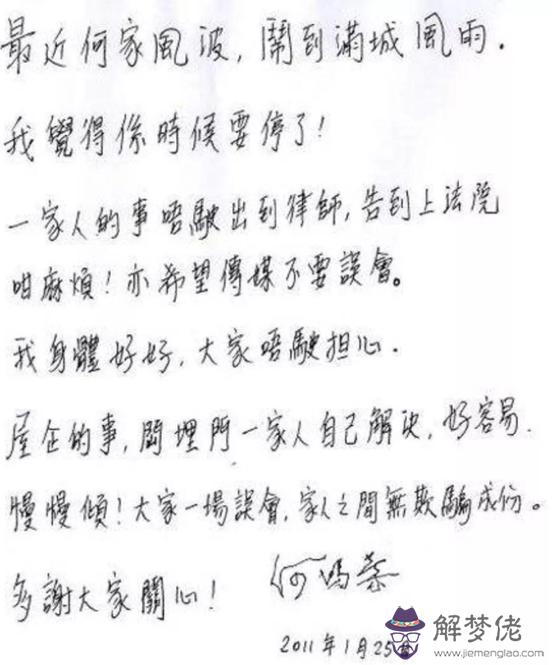 最近何家風波，鬧到滿城風雨．
我覺得係時候要停了！
一家人的事唔駛出到律師，告到上法院
咁麻煩！亦希望傳媒不要誤會。
我身體好好，大家唔駛担心．
屋企的事，關埋門一家人自己解決，好容易．
慢慢傾！大家一場誤會，家人之間無欺騙成份。
多謝大家關心！
何鴻燊
2011年1月25
解梦佬
www.jiemenglao.com